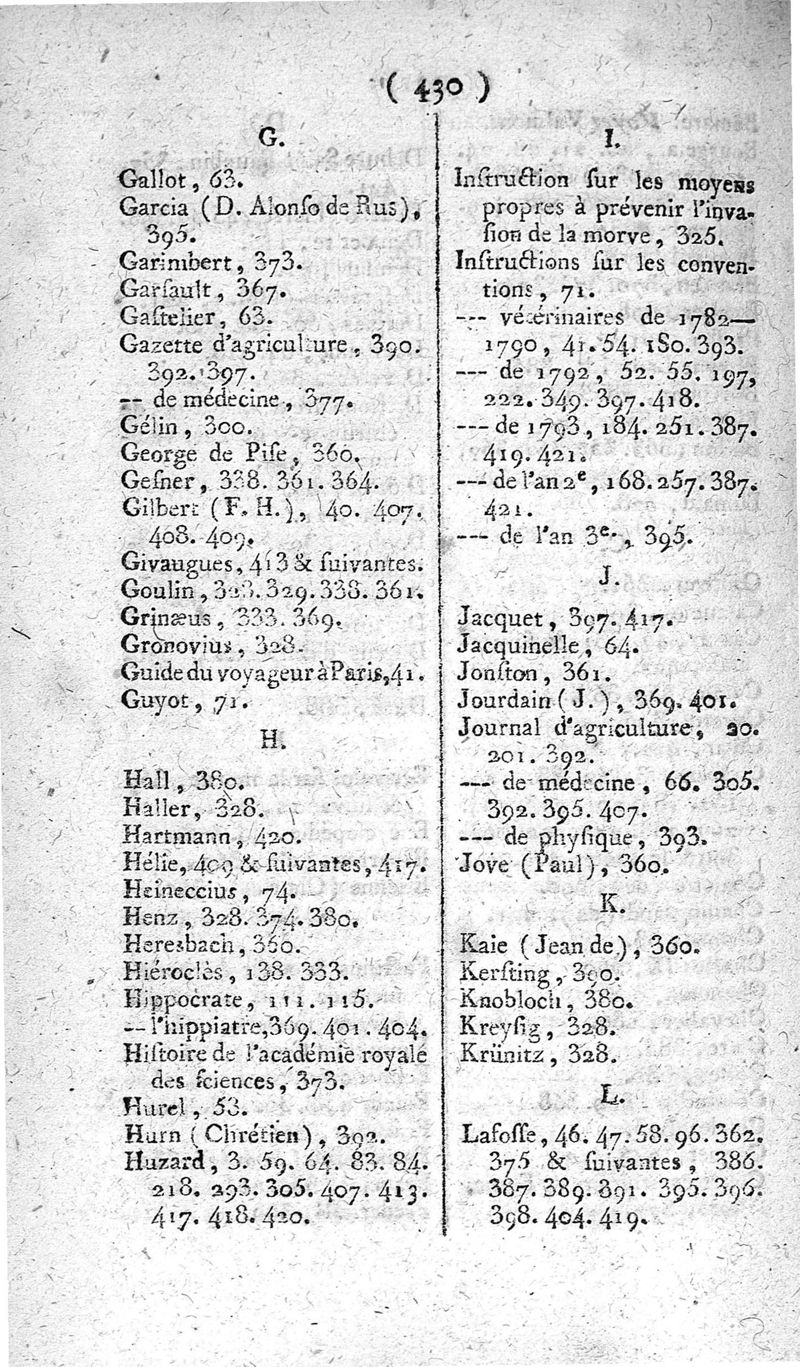 ( 430 )
G.
Gallot, 63.
Garcia (D. Alonſo de Rus),
395.
Garimbert, 373.
Garſault, 367.
Gaſtelier, 63.
Gazette d'agriculture, 390.
392. 397.
-- de médecine, 377.
Gélin, 300.
George de Piſe, 360.
Geſner, 338. 361. 364.
Gilbert (F. H.), 40. 407.
408. 409.
Givaugues, 413 & ſuivantes.
Goulin, 328. 329. 338. 361.
Grinæus, 333. 369.
Gronovius, 328.
Guide du voyageur à Paris, 41.
Guyot, 71.
H.
Hall, 380.
Haller, 328.
Hartmann, 420.
Hélie, 409 & ſuivantes, 417.
Heineccius, 74.
Henz, 328. 374. 380.
Heresbach, 360.
Hiéroclès, 138. 333.
Hippocrate, 111. 115.
-- l'hippiatre, 369. 401. 404.
Hiſtoire de l'académie royale
des ſciences, 373.
Hurel, 53.
Hurn (Chrétien), 392.
Huzard, 3. 59. 64. 83. 84.
218. 293. 305. 407. 413.
417. 418. 420.
I.
Inſtruction ſur les moyens
propres à prévenir l'inva-
ſion de la morve, 325.
Inſtructions ſur les conven-
tions, 71.
--- vétérinaires de 1782—
1790, 41. 54. 180. 393.
--- de 1792, 52. 55. 197,
222. 349. 397. 418.
--- de 1793, 184. 251. 387.
419. 421.
--- de l'an 2e, 168. 257. 387.
421.
--- de l'an 3e., 395.
J.
Jacquet, 397. 417.
Jacquinelle, 64.
Jonſton, 361.
Jourdain (J.), 369. 401.
Journal d'agriculture, 20.
201. 392.
--- de médecine, 66. 305.
392. 395. 407.
--- de phyſique, 393.
Jove (Paul), 360.
K.
Kaie (Jean de), 360.
Kerſting, 390.
Knobloch, 380.
Kreyſig, 328.
Krünitz, 328.
L.
Lafoſſe, 46. 47. 58. 96. 362.
375 & ſuivantes, 386.
387. 389. 391. 395. 396.
398. 404. 419.